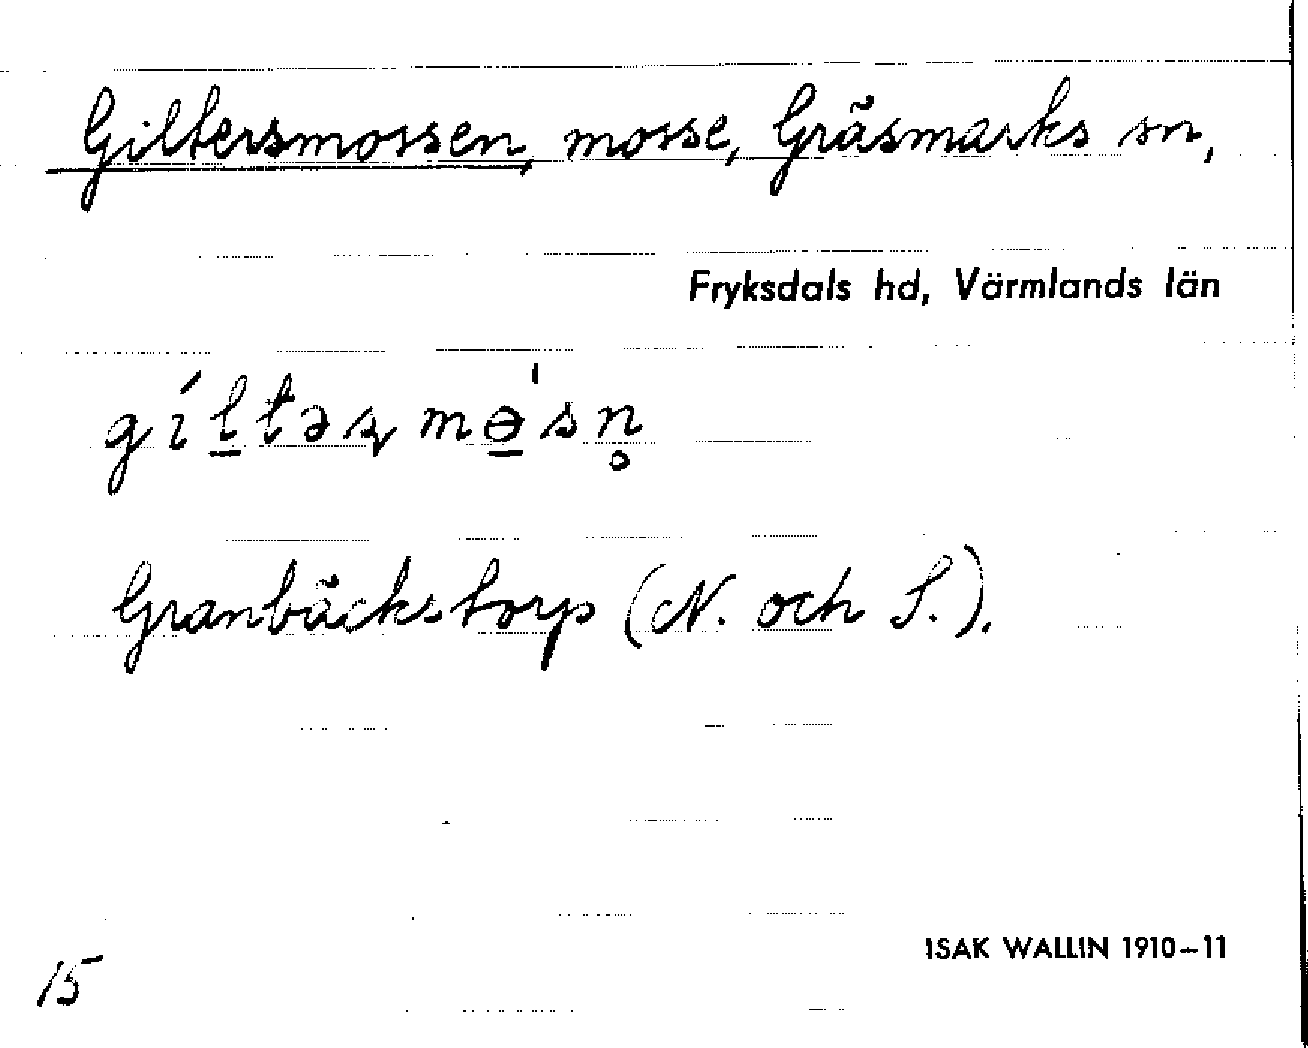 Giltersmossen, mosse, Gräsmarks sn,
Fryksdals hd, Värmlands län
gíl̲təʂ mɵ̲́sn̥
Granbäckstorp (N. och S.).
ISAK WALLIN 1910–11
15